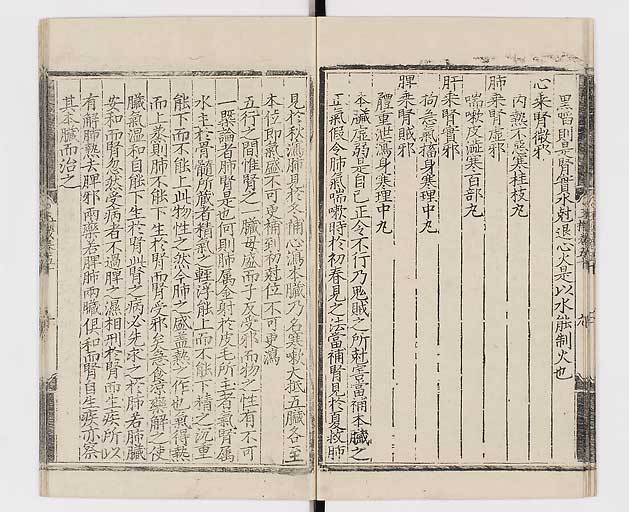 黑唱則是腎實水尅退心火是以水能制火也
心乘腎微邪
內熱不惡寒桂枝丸
肺乘腎虛邪
喘嗽皮澁寒百部丸
肝乘腎實邪
拘急氣搐身寒理中丸
脾乘腎賊邪
體重泄瀉身寒理中丸
本臟虛弱是自己正令不行乃鬼賊之所尅害當補本臟之
正氣假令肺氣喘嗽時於初春見之法當補腎見於夏救肺
見於秋瀉肺見於冬補心瀉本臟乃名寒嗽大抵五臟各至
本位即氣盛不可更補到初尅位不可更瀉
五行之間惟腎之一臟母盛而子反受邪而物之性有不可
一槩論者肺腎是也何則肺属金射於皮毛所主者氣腎属
水主於骨髓所藏者精氣之輕浮能上而不能下精之沉重
能下而不能上此物性之然今肺之盛盖熱之作也氣得熱
而上蒸則肺不能下生於腎而腎受邪矣急食凉藥解之使
臟氣溫和自能下生於腎此腎之病必先求之於肺若肺臟
安和而腎忽然受病者不過脾之濕相刑於腎而生疾所以
有解肺熱去脾邪兩藥若脾肺兩臟俱和而腎自生疾亦祭
其本臟而治之